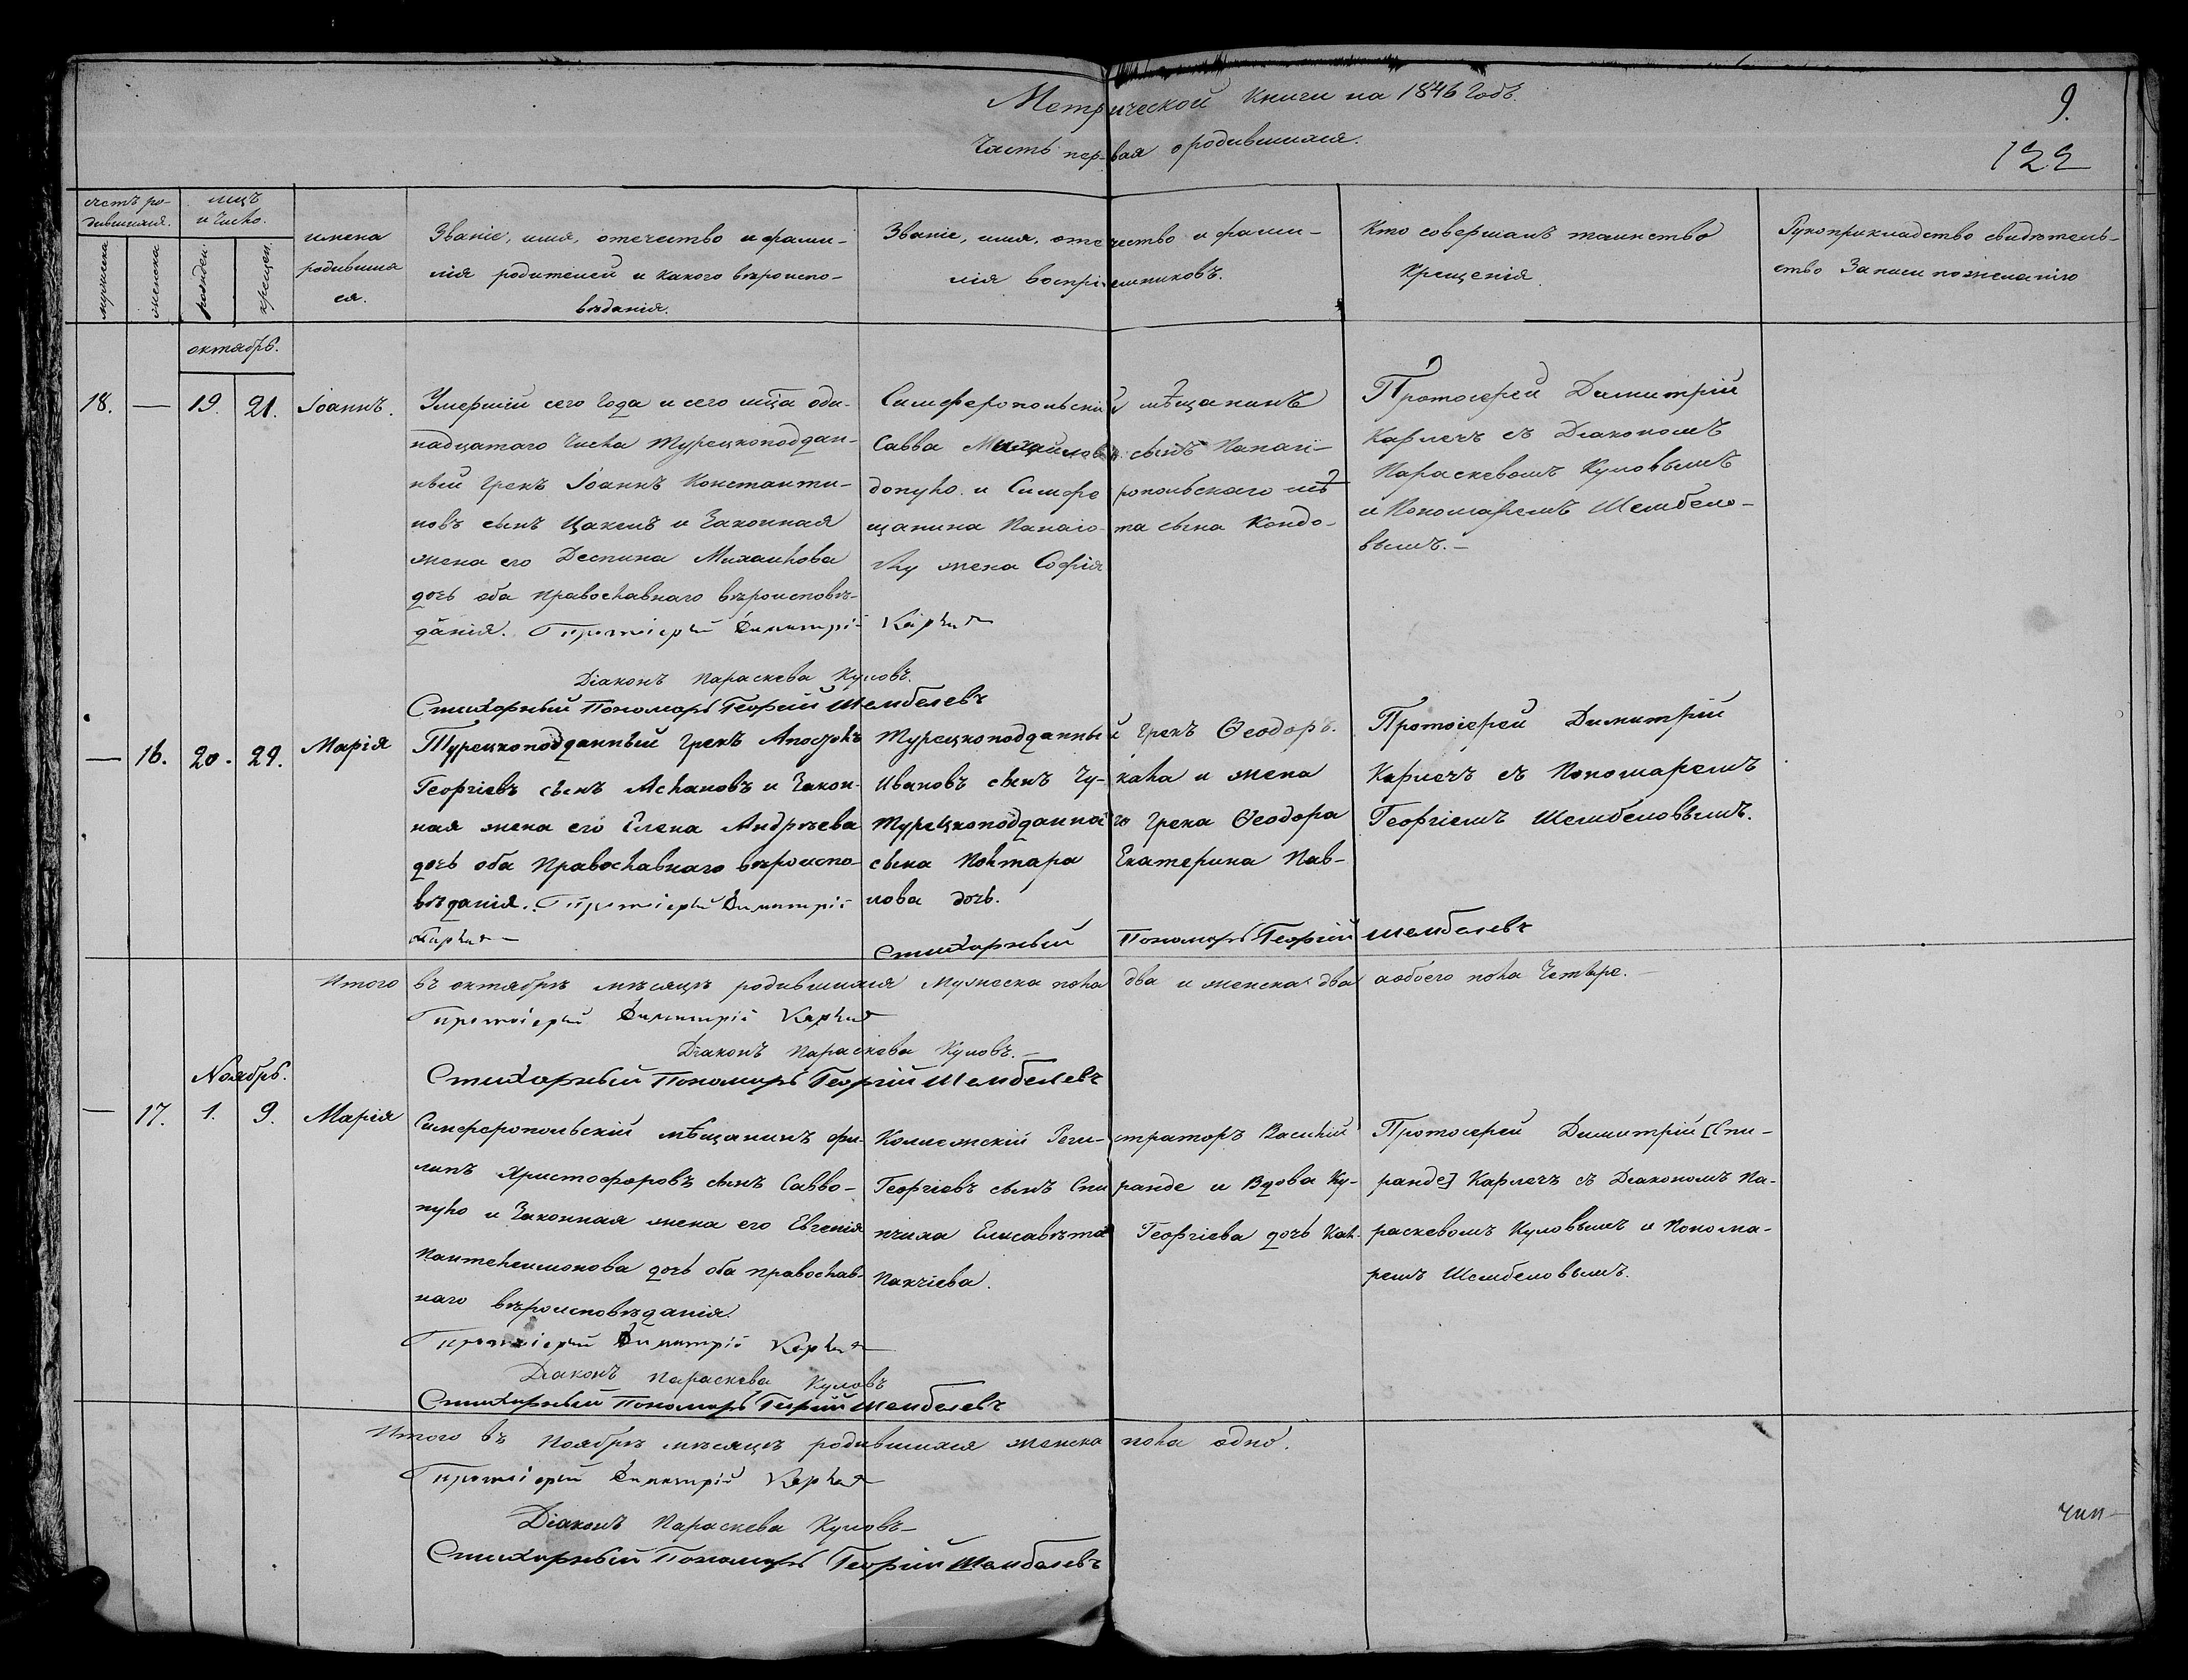 Метрической Книги на 1846 Годъ.
9.
Часть первая о родившихся.
122
счетъ ро-
дившихся.
мужеска
женска
мцъ
и число.
рожден.
крещен.
имена
родивша
ся.
Званіе, имя, отечество и фами-
лія родителей и какого вѣроиспо-
вѣданія.
Званіе, имя, отечество и фами-
лія воспріемниковъ.
Кто совершалъ таинство
Крещенія.
Рукоприкладство свидѣтель-
ство Записи по желанію
октябрь.
18. — 19. 21. Іоаннъ.
Умершій сего Года и сего мца оди-
надцатаго Числа Турецкоподдан-
ный Грекъ Іоаннъ Константи-
новъ сынъ Цакелъ и Законная
жена его Деспина Михаилова
дочь оба православнаго вѣроисповѣ-
данія. Протоіерей Димитрій
Діаконъ Параскева Куловъ.
Стихарный Пономарь Георгій Шембелевъ
Симферопольскій мѣщанинъ
Савва Михайловъ сынъ Папаги-
допуло. и Симферопольскаго мѣ
щанина Панаіота сына Кондо-
глу жена Софія
Протоіерей Димитрій
Карлечъ съ Діакономъ
Параскевомъ Куловымъ
и Пономаремъ Шембело-
вымъ. —
— 16. 20. 29. Марія
Турецкоподданный Грекъ Апостолъ
Георгіевъ сынъ Аслановъ и Закон-
ная жена его Елена Андрѣева
дочь оба Православнаго вѣроиспо-
вѣданія. Протоіерей Димитрій
Турецкоподданный Грекъ Ѳеодоръ.
Ивановъ сынъ Чу-кала и жена
Турецкоподданнаго Грека Ѳеодора
сына Полтара Екатерина Пав-
лова дочь.
Стихарный Пономарь Георгій Шембелевъ
Протоіерей Димитрій
Карлечъ съ Пономаремъ
Георгіемъ Шембеловымъ.
Итого въ октябрѣ мѣсяцѣ родившихся мужеска пола два и женска два а обоего пола Четыре. —
Протоіерей Димитрій
Діаконъ Параскева Куловъ. —
Стихарный Пономарь Георгій Шембелевъ
Ноябрь.
— 17. 1. 9. Марія
Симферопольскій мѣщанинъ фи-
липъ Христофоровъ сынъ Савво-
пуло и Законная жена его Евгенія
Пантелеимонова дочь оба православ-
наго вѣроисповѣданія.
Протоіерей Димитрій
Діаконъ Параскева Куловъ
Стихарный Пономарь Георгій Шембелевъ
Колиежскій Реги-страторъ Василій
Георгіевъ сынъ Спиранде и Вдова Ку-
пчиха Елисавѣта Георгіева дочь Кал-
Папчіева.
Протоіерей Димитрій [Спи-
ранде] Карлечъ съ Діакономъ Па-
раскевомъ Куловымъ и Понома-
ремъ Шембеловымъ.
Итого въ Ноябрѣ мѣсяцѣ родившихся женска пола одно.
Протоіерей Димитрій
Діаконъ Параскева Куловъ —
Стихарный Пономарь Георгій Шембелевъ